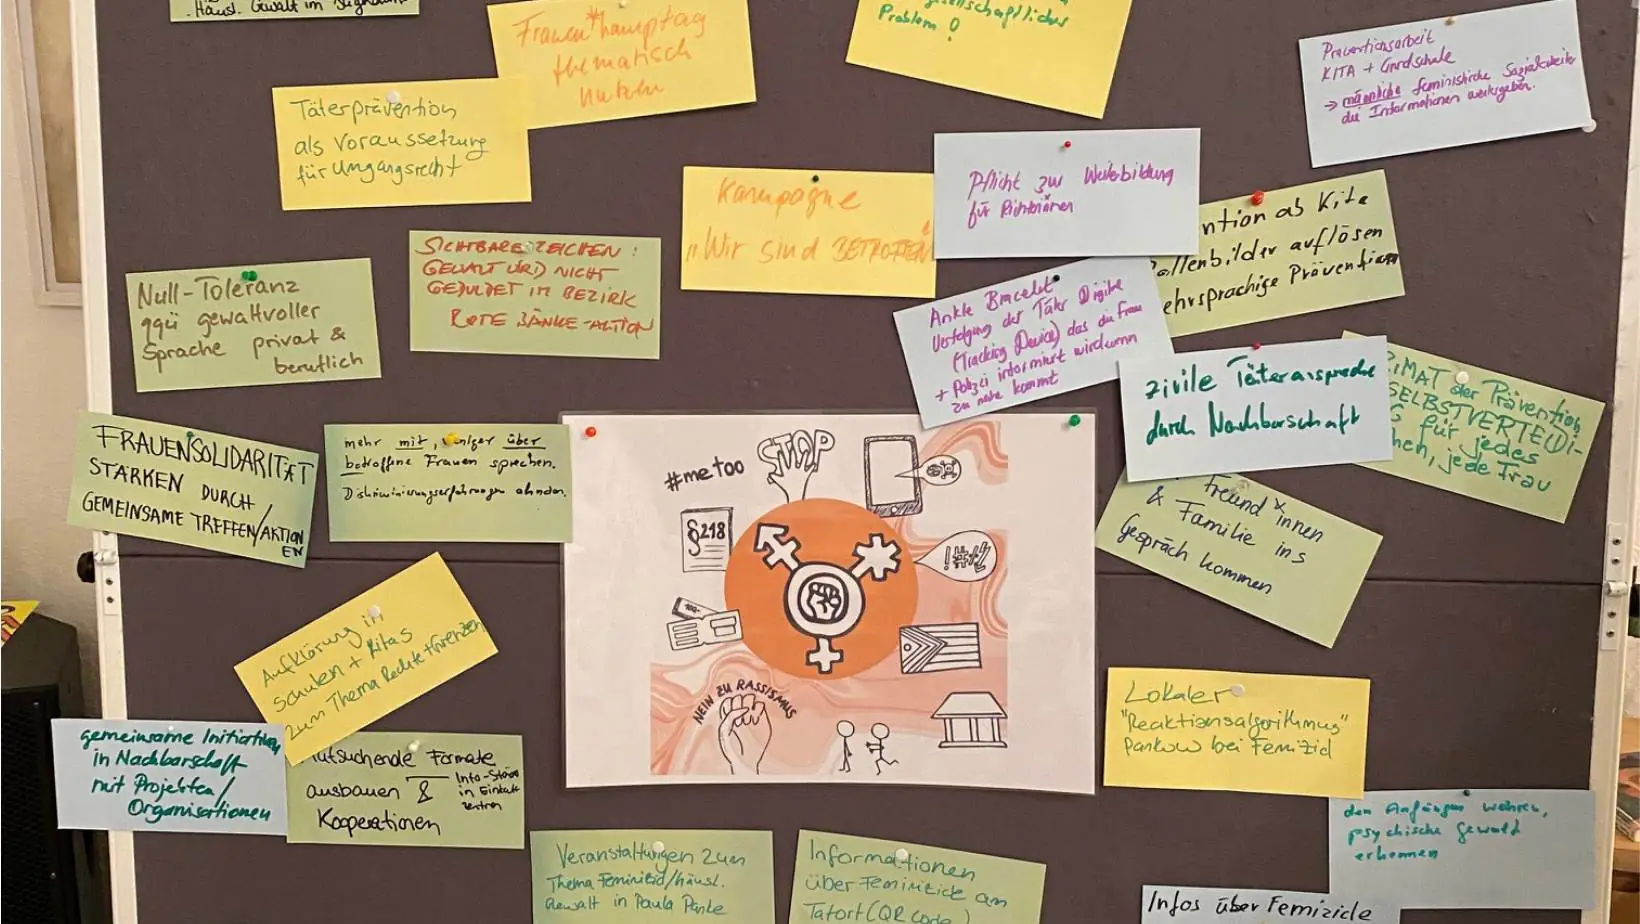 Häusl. Gewalt im
Frauen*kampftag
thematisch
nutzen
gesellschaftliches
Problem!
Präventionsarbeit
KITA + Grundschule
→ männliche feministische Sozialarbeiter
die Informationen weitergeben.
Täterprävention
als Voraussetzung
für Umgangsrecht
Kampagne
"Wir sind BETROFFEN"
Pflicht zur Weiterbildung
für Richter*innen
ntion ab Kita
ollenbilder auflösen
ehrsprachige Prävention
SICHTBARE ZEICHEN:
GEWALT WIRD NICHT
GEDULDET IM BEZIRK
ROTE BÄNKE-AKTION
Null-Toleranz
ggü gewaltvoller
Sprache privat &
beruflich
Ankle Bracelet
Verfolgung der Täter Digitle
(Tracking Device) das die Frau
+ Polizei informiert wird wenn
zu nahe kommt
zivile Täteransprache
durch Nachbarschaft
IMAT der Prävention
SELBSTVERTEIDI-
G für jedes
chen, jede Frau
FRAUENSOLIDARITÄT
STÄRKEN DURCH
GEMEINSAME TREFFEN/AKTION
EN
mehr mit, weniger über
betroffene Frauen sprechen.
Diskriminierungserfahrungen ahnden.
Freund*innen
& Familie ins
Gespräch kommen
#metoo
STOP
§218
!#*
100,-
NEIN ZU RASSISMUS
Aufklärung in
Schulen + Kitas
zum Thema Rechte + Grenzen
gemeinsame Initiativen
in Nachbarschaft
mit Projekten/
Organisationen
ufsuchende Formate
ausbauen &
Info-Stände
in Einkaufs
zentren
Kooperationen
Lokaler
"Reaktionsalgorithmus"
Pankow bei Femizid
den Anfängen wehren,
psychische Gewalt
erkennen
Veranstaltungen zum
Thema Femizid/häusl.
Gewalt in Paula Panke
Informationen
über Femizide am
Tatort (QR code)
Infos über Femizide